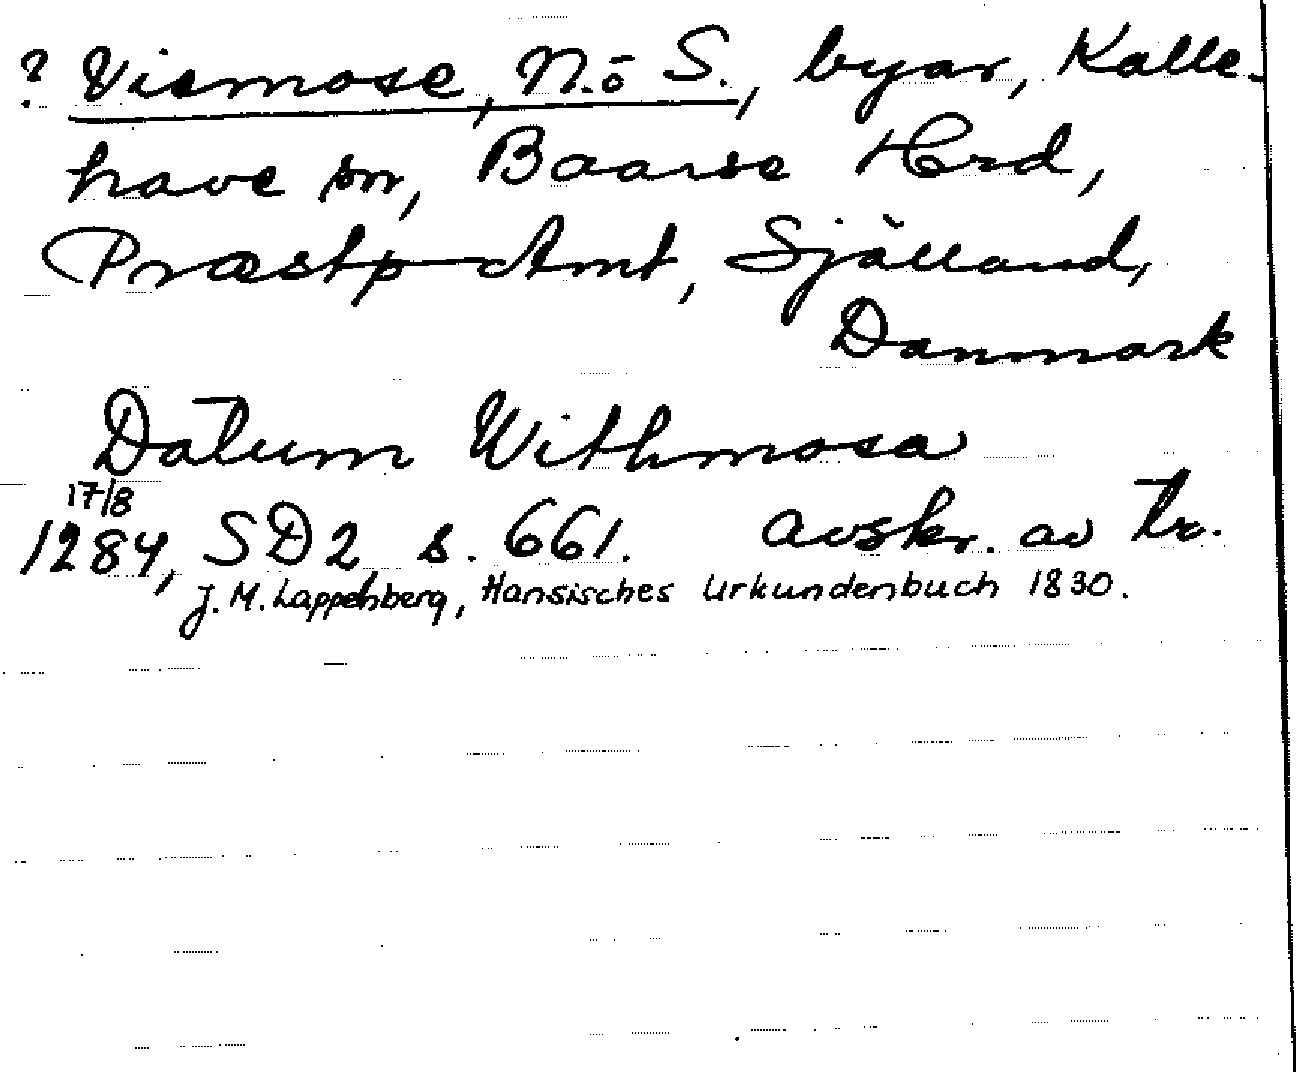 ? Vismose, N. o S., byar, Kalle-
have sn, Baarse Hrd,
Præstø Amt, Själland,
Danmark
Datum Withmosa
17/8
1284, SD2 s. 661. avskr. av tr.
J. M. Lappenberg, Hansisches Urkundenbuch 1830.